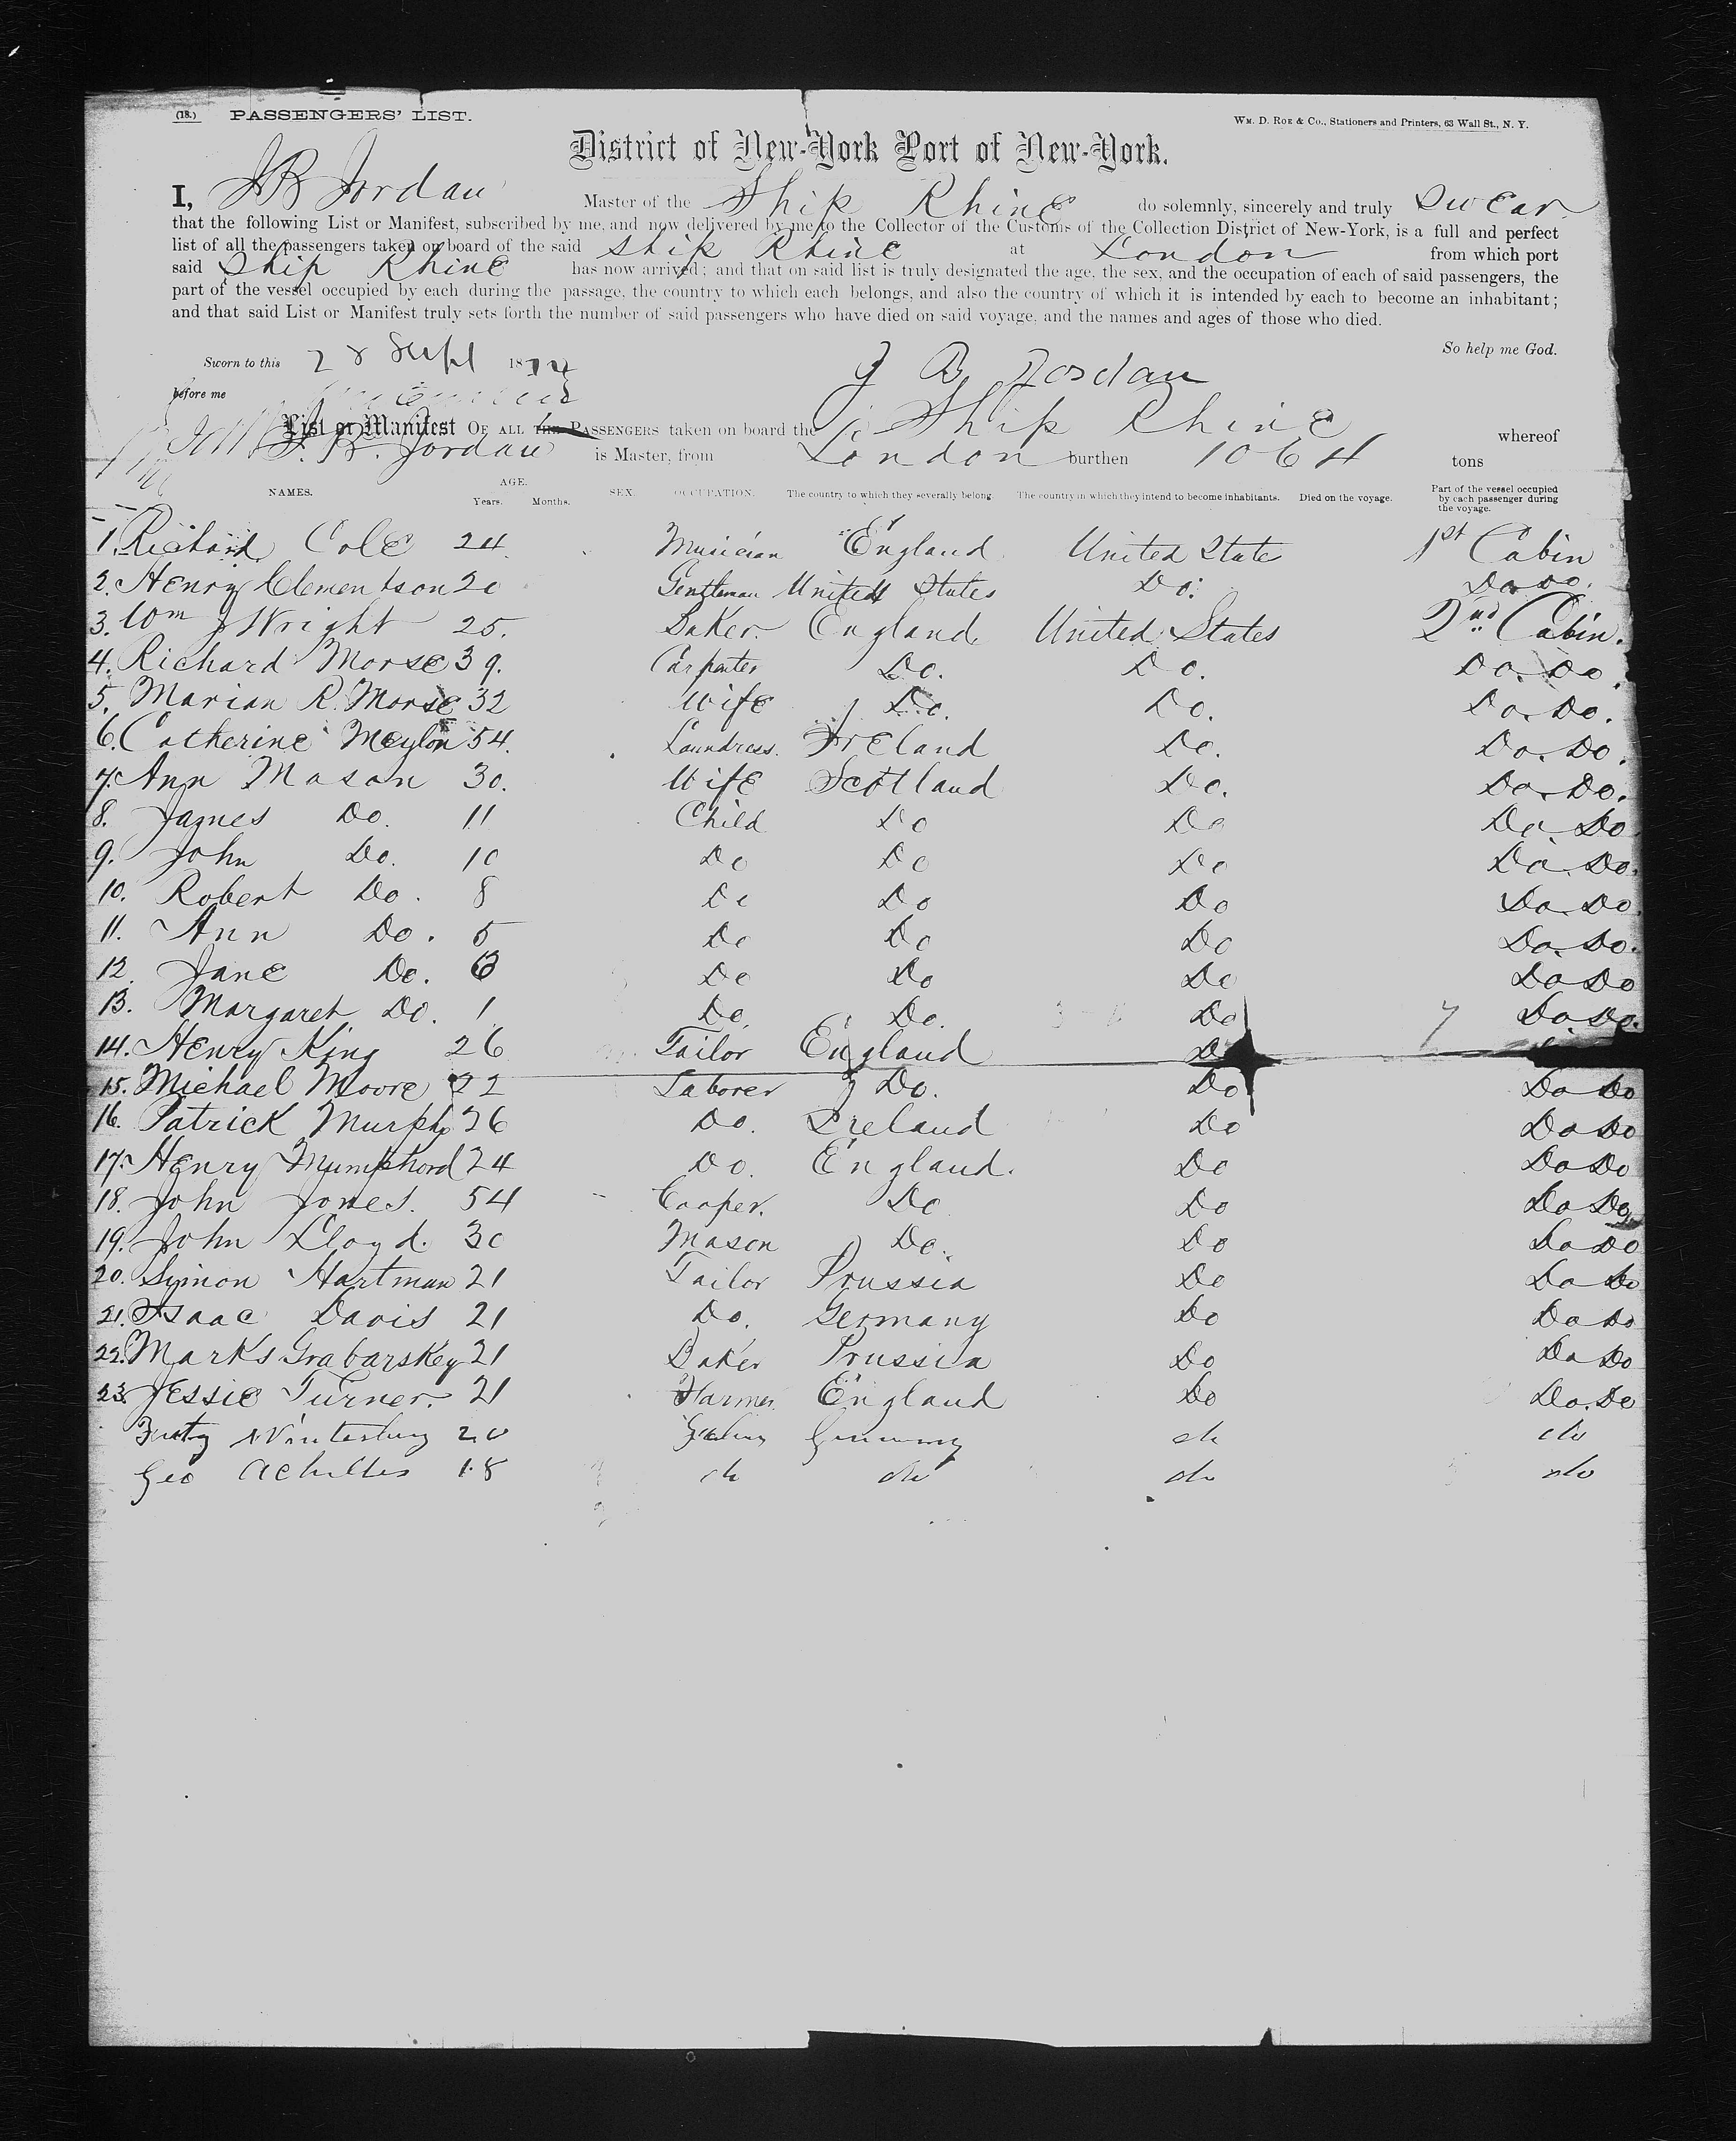 (18.) PASSENGERS' LIST. WM. D. ROE & CO., Stationers and Printers, 63 Wall St., N. Y.
District of New-York Port of New-York.
I, J B Jordan Master of the Ship Rhine do solemnly, sincerely and truly Swear
that the following List or Manifest, subscribed by me, and now delivered by me to the Collector of the Customs of the Collection District of New-York, is a full and perfect
list of all the passengers taken on board of the said Ship Rhine at London from which port
said Ship Rhine has now arrived; and that on said list is truly designated the age, the sex, and the occupation of each of said passengers, the
part of the vessel occupied by each during the passage, the country to which each belongs, and also the country of which it is intended by each to become an inhabitant;
and that said List or Manifest truly sets forth the number of said passengers who have died on said voyage, and the names and ages of those who died.
So help me God.
Sworn to this 28 Sept 1874 J B Jordan
before me
List or Manifest OF ALL THE PASSENGERS taken on board the Ship Rhine whereof
J. B. Jordan is Master, from London burthen 1064 tons
NAMES. AGE. Years. Months. SEX. OCCUPATION. The country to which they severally belong. The country in which they intend to become inhabitants. Died on the voyage. Part of the vessel occupied by each passenger during the voyage.
1. Richard Cole 24 Musician England United State 1st Cabin
2. Henry Clementson 20 Gentleman United States Do. Do Do.
3. Wm J Wright 25. Baker. England United States 2nd Cabin.
4. Richard Morse 39. Carpenter Do. Do. Do. Do.
5. Marian R. Morse 32 Wife Do. Do. Do. Do.
6. Catherine Meylon 54. Laundress. Ireland Do. Do. Do.
7. Ann Mason 30. Wife Scotland Do. Do. Do.
8. James Do. 11 Child Do Do Do. Do.
9. John Do. 10 Do Do Do Do. Do.
10. Robert Do. 8 Do Do Do Do. Do.
11. Ann Do. 5 Do Do Do Do. Do.
12. Jane Do. Do Do Do Do Do
13. Margaret Do. 1 Do. Do. Do Do. Do.
14. Henry King 26 Tailor England
15. Michael Moore 22 Laborer Do. Do Do Do
16. Patrick Murphy 26 Do. Ireland Do Do Do
17. Henry Mumphord 24 Do. England. Do Do Do
18. John Jones. 54 Cooper. Do Do Do Do
19. John Lloyd. 30 Mason Do. Do Do Do
20. Symon Hartman 21 Tailor Prussia Do Do Do
21. Isaac Davis 21 Do. Germany Do Do Do
22. Marks Grabarskey 21 Baker Prussia Do Do Do
23. Jessie Turner. 21 Farmer. England Do Do. Do
Winterburg 20 Germany do do
Geo Achilles 18 do do do do